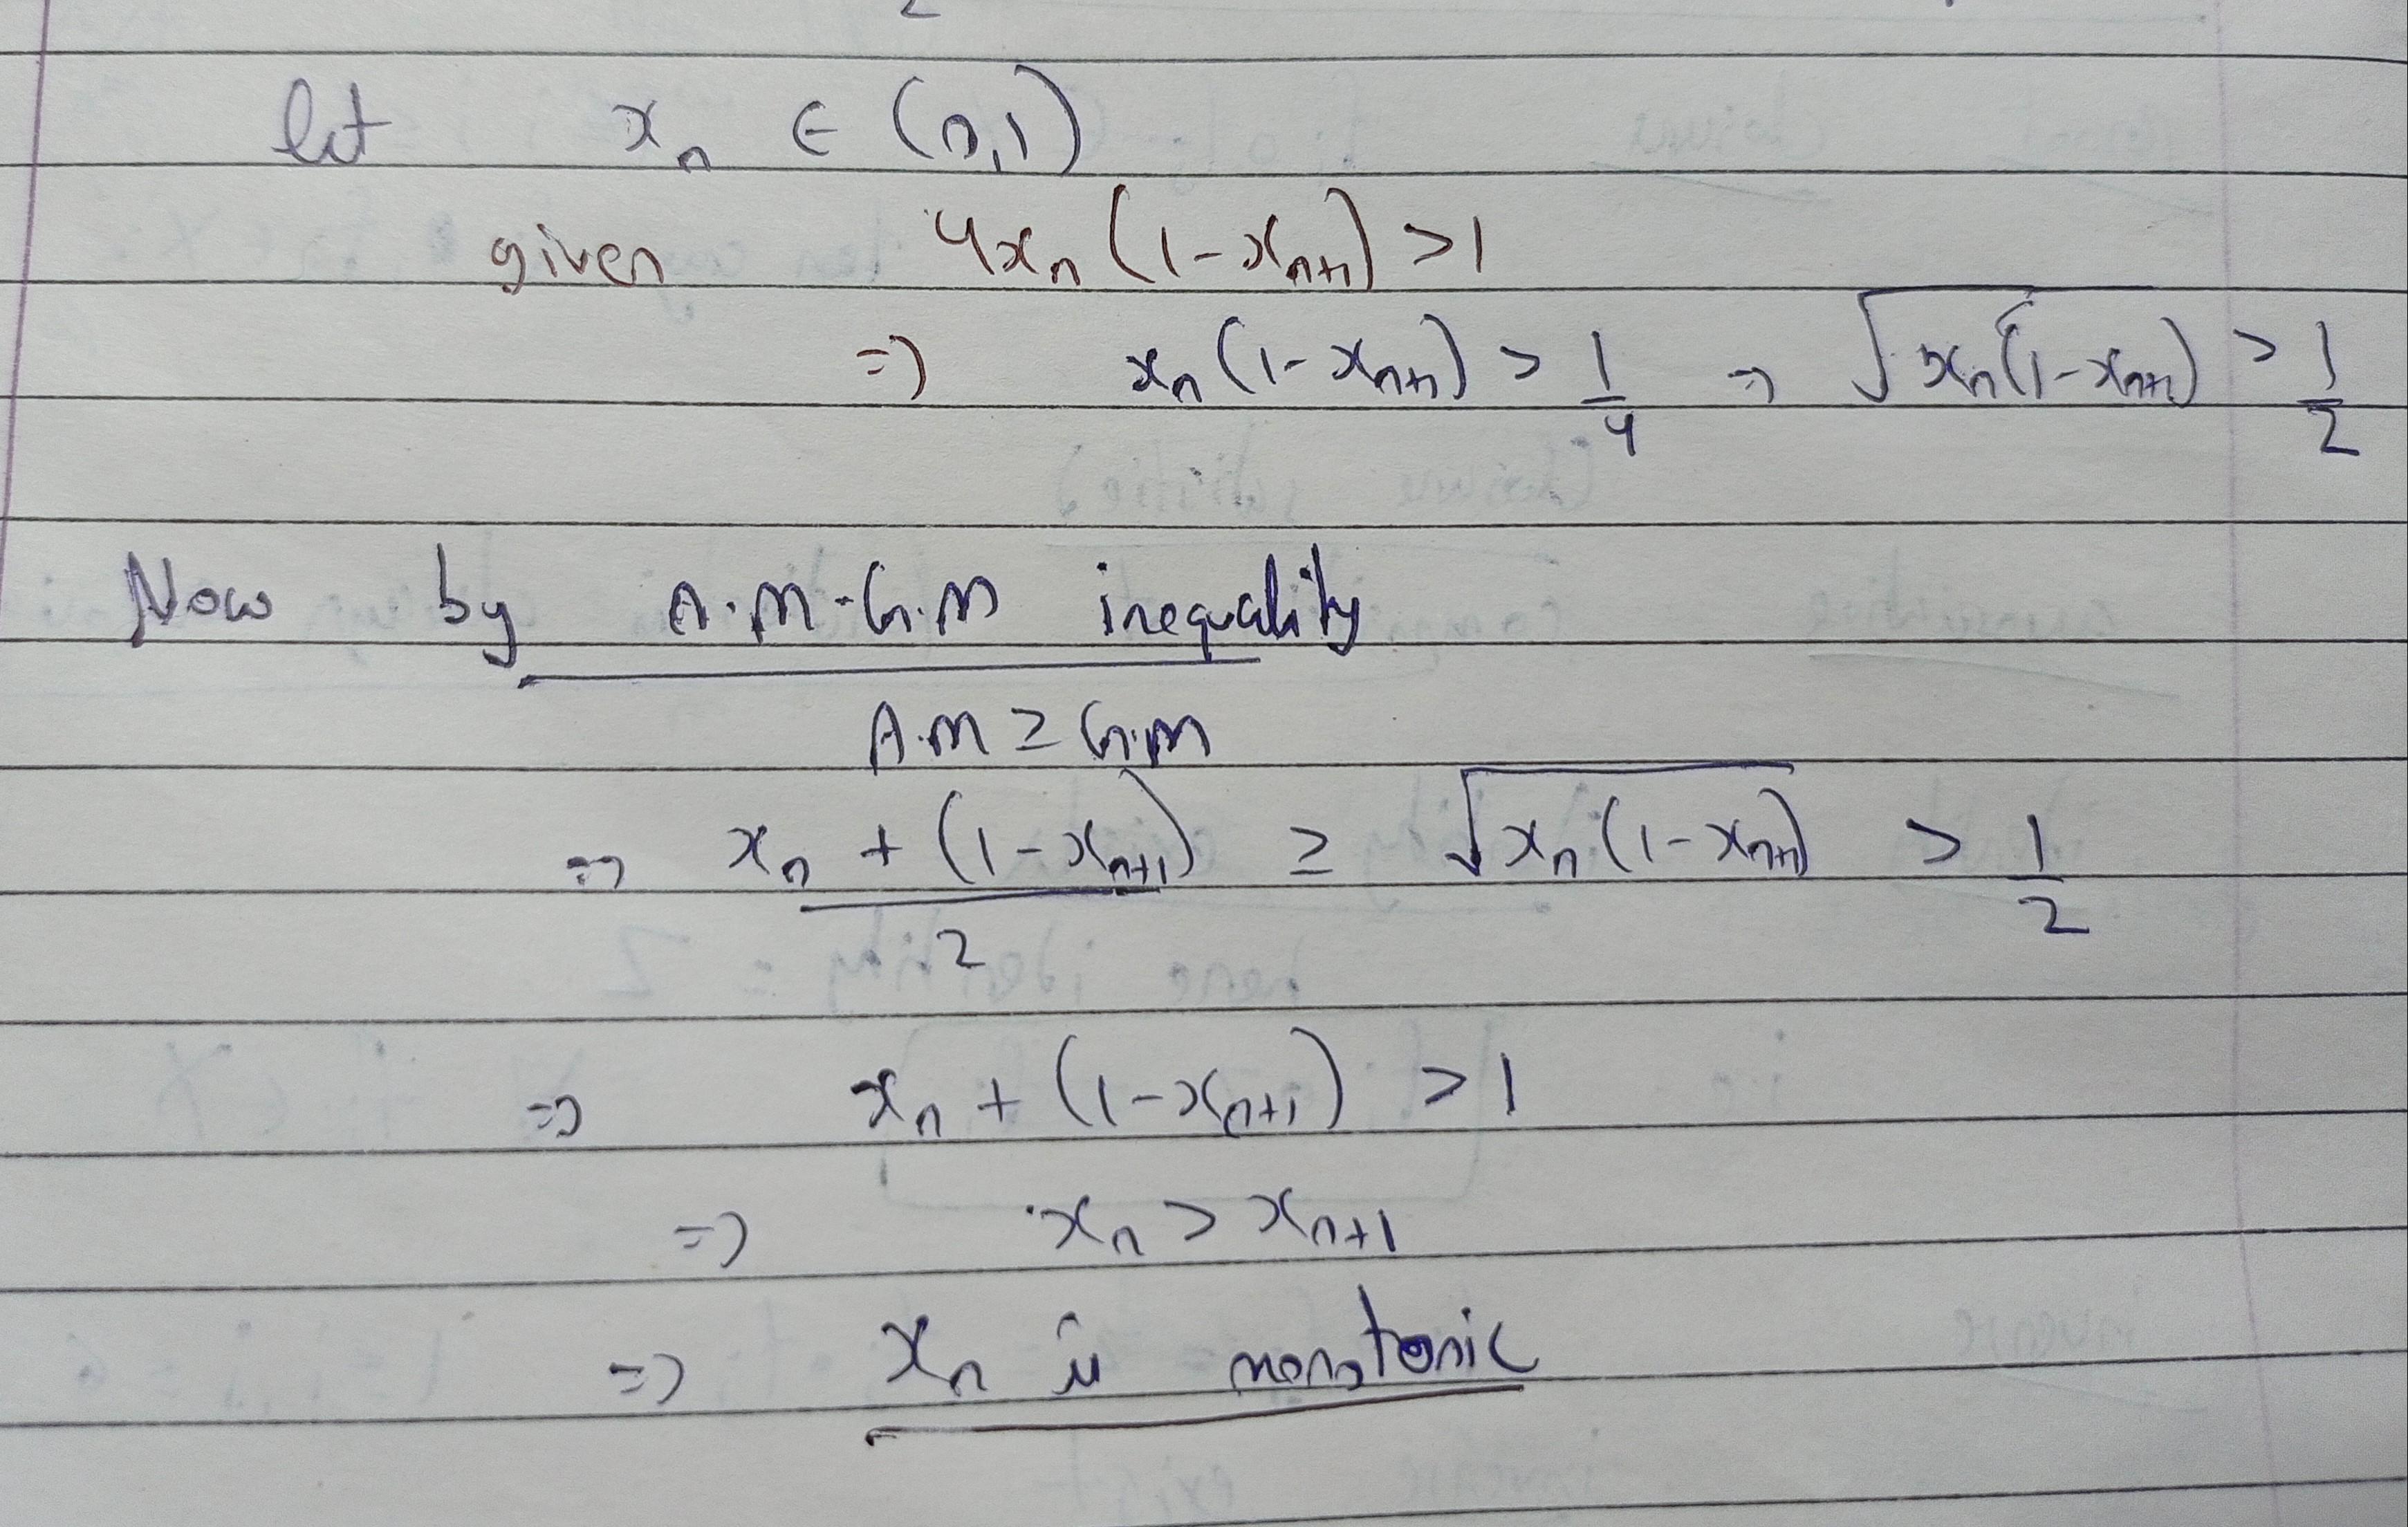 let xₙ ∈ (0,1)
given 4xₙ(1-xₙ₊₁) >1
=) xₙ(1-xₙ₊₁) > 1/4 => √(xₙ(1-xₙ₊₁)) > 1/2
Now by A.M-G.M inequality
A.M ≥ G.M
=> (xₙ + (1-xₙ₊₁))/2 ≥ √(xₙ(1-xₙ₊₁)) > 1/2
=> xₙ + (1-xₙ₊₁) > 1
=) xₙ > xₙ₊₁
=) xₙ is monotonic